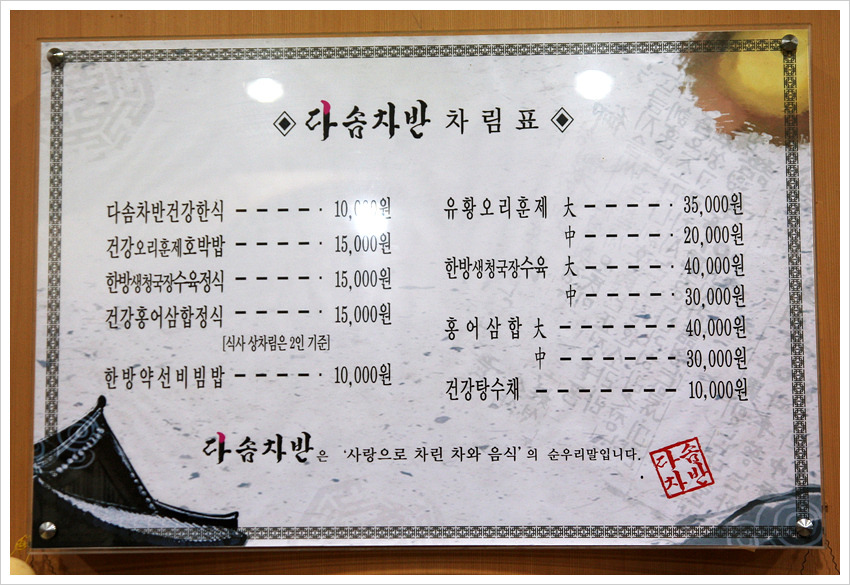 다솜차반 차림표
다솜차반건강한식 10,000원
건강오리훈제호박밥 15,000원
한방생청국장수육정식 15,000원
건강홍어삼합정식 15,000원
[식사 상차림은 2인 기준]
한방약선비빔밥 10,000원
유황오리훈제 大 35,000원
中 20,000원
한방생청국장수육 大 40,000원
中 30,000원
홍어삼합 大 40,000원
中 30,000원
건강탕수채 10,000원
다솜차반은 '사랑으로 차린 차와 음식'의 순우리말입니다.
다솜
차반